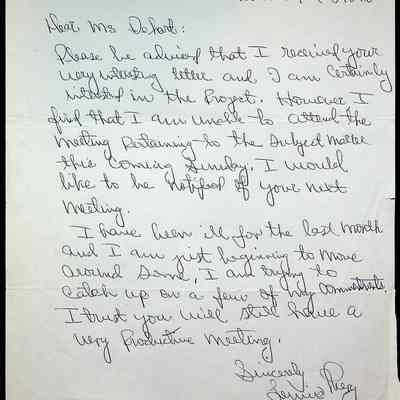 Dear Ms Dehart:
Please be advised that I received your
very interesting letter and I am certainly
interested in the Project. However I
find that I am unable to attend the
meeting Pertaining to the Subject Matter
this Coming Sunday. I would
like to be notified of your next
Meeting.
I have been ill for the last month
and I am just beginning to move
around some, I am trying to
Catch up on a few of my commitments.
I trust you will still have a
very Productive Meeting.
Sincerely